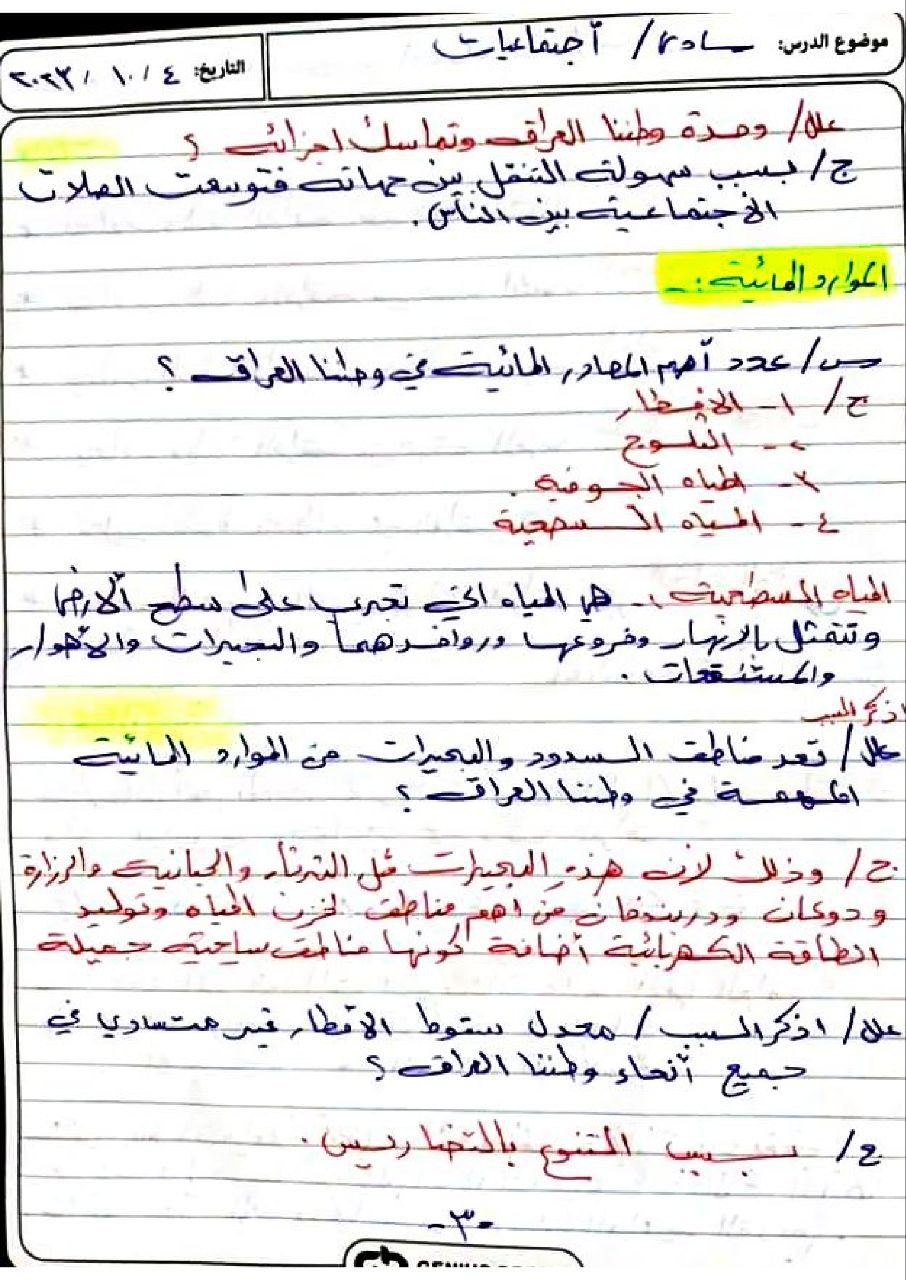 موضوع الدرس: سادس / أجتماعيات
التاريخ: ٤ / ١٠ / ٢٠٢٣
علل/ وحدة وطننا العراق وتماسك اجزائه ؟
ج/ بسبب سهولة التنقل بين جهاته فتوسعت الصلات
الاجتماعية بين الناس.
الموارد المائية :-
س/ عدد أهم المصادر المائية في وطننا العراق ؟
ج/ ١- الامطار
٢- الثلوج
٣- المياه الجوفية.
٤- المياه السطحية
المياه السطحية :- هي المياه التي تجري على سطح الأرض
وتتمثل بالانهار وفروعها وروافدهما والبحيرات والأهوار
والمستنقعات.
اذكر السبب
علل/ تعد مناطق السدود والبحيرات من الموارد المائية
المهمة في وطننا العراق ؟
ج/ وذلك لأن هذه البحيرات مثل الثرثار والحبانية والرزازة
ودوكان ودربندخان من أهم مناطق لخزن المياه وتوليد
الطاقة الكهربائية أضافة كونها مناطق سياحية جميلة
علل/ اذكر السبب/ معدل سقوط الامطار غير متساوي في
جميع أنحاء وطننا العراق ؟
ج/ بسبب التنوع بالتضاريس.
-٣-